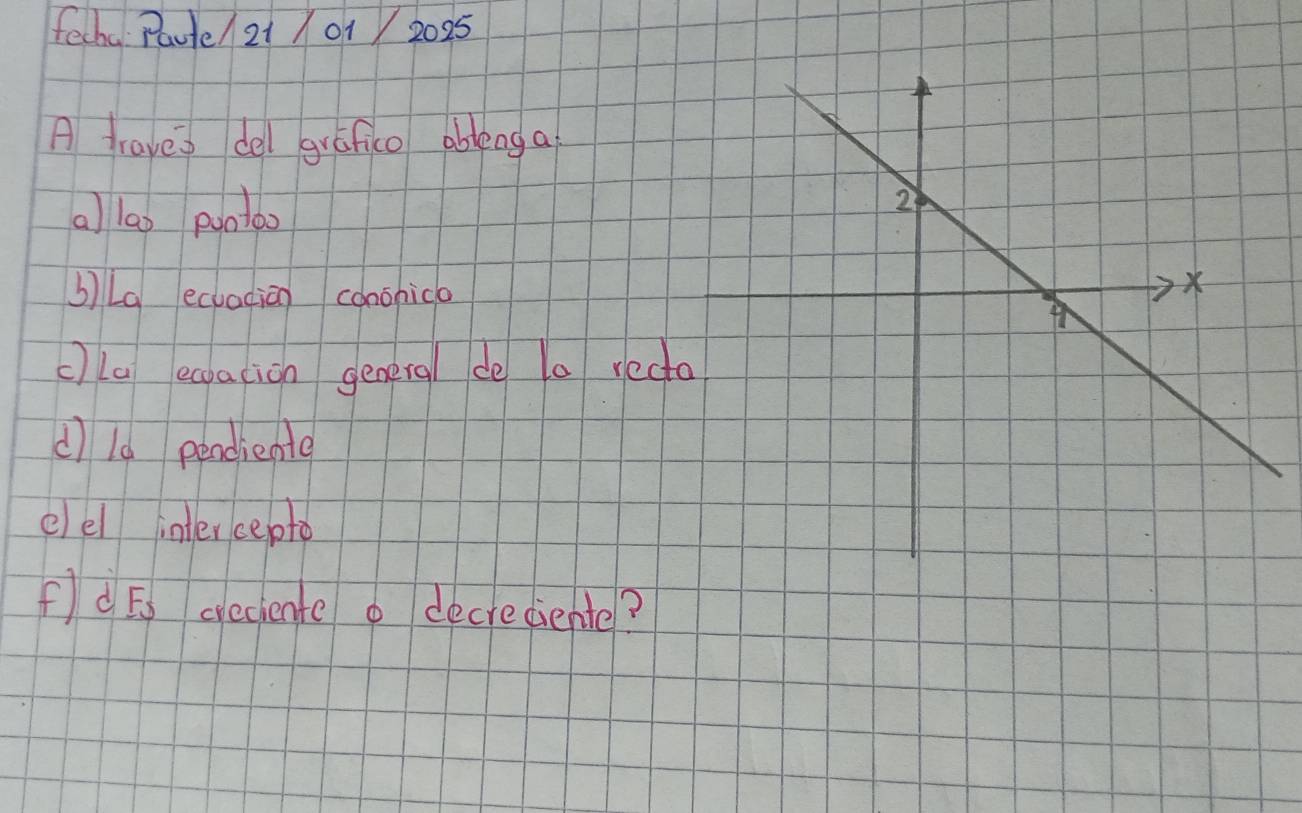 fecha: Paute/ 21 / 01 / 2025
A través del gráfico obtenga:
a) los puntos
b) La ecuación canónica
c) La ecuación general de la recta
d) la pendiente
e) el intercepto
f) ¿Es creciente o decreciente?
2
x
4